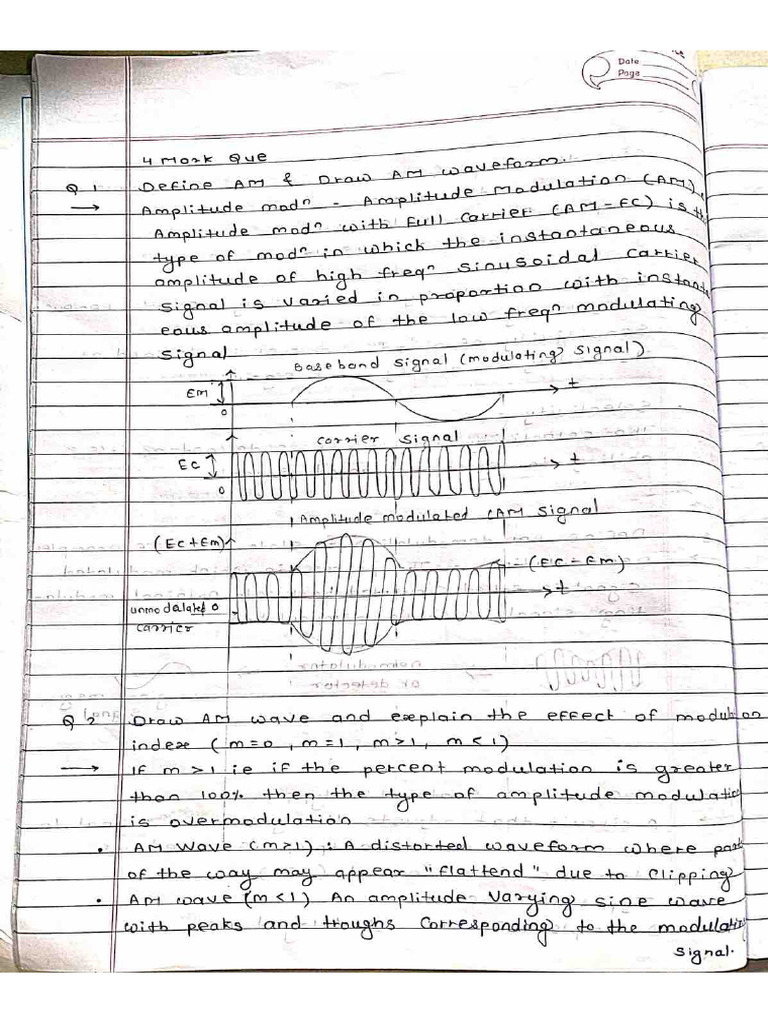 Date
Page
4 Mark Que
Q 1 Define AM & Draw AM waveform.
→ Amplitude modⁿ - Amplitude Modulation (AM),
Amplitude modⁿ with full carrier (AM-FC) is th
type of modⁿ in which the instantaneous
amplitude of high freqⁿ sinusoidal carrier
signal is varied in proportion with instant
eous amplitude of the low freqⁿ modulating
signal
Baseband signal (modulating signal)
Em
0
t
carrier signal
Ec
0
t
Amplitude modulated (AM signal
(Ec+Em)
(EC-Em)
t
unmodalated 0
carrier
Q 2 Draw AM wave and explain the effect of modulation
index (m=0, m=1, m>1, m<1)
→ If m>1 ie if the percent modulation is greater
than 100% then the type of amplitude modulati
is overmodulation
• AM Wave (m>1) : A distorted waveform where part
of the way may appear "flattend" due to clipping
• AM wave (m<1) An amplitude varying sine wave
with peaks and troughs corresponding to the modulati
signal.